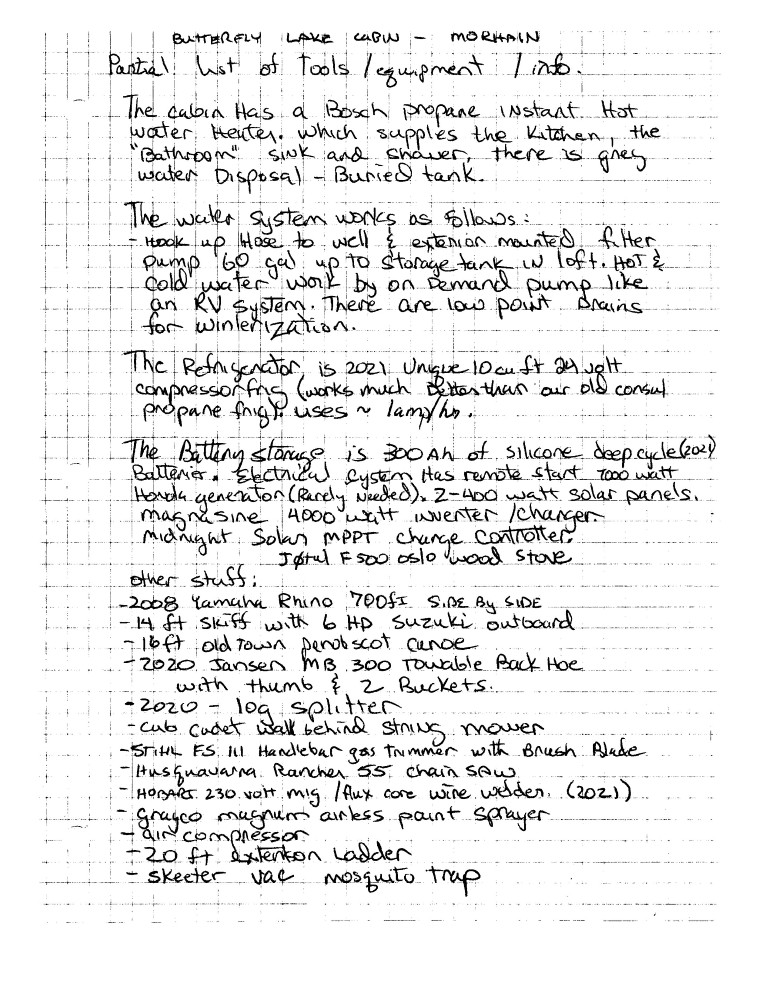 BUTTERFLY LAKE CABIN - MORHAIN
Partial list of Tools / equipment / info.
The cabin Has a Bosch propane instant Hot
water Heater. which supples the Kitchen, the
"Bathroom" sink and shower, there is grey
water Disposal - Buried tank.
The water system works as follows:
- Hook up Hose to well & exterior mounted filter
pump 60 gal up to storage tank in loft. HOT &
cold water work by on Demand pump like
an RV system. There are low point Drains
for winterization.
The Refrigerator is 2021 Unique 10 cu ft 24 volt
compressor frig (works much better than our old consul
propane frig). uses ~ 1amp/hr.
The Battery storage is 300 Ah of silicone deep cycle (2021)
Batteries. Electrical system Has remote start 7000 watt
Honda generator (Rarely Needed). 2-400 watt solar panels.
magnasine 4000 watt inverter / charger.
midnight Solar MPPT charge controller.
Jøtul F 500 oslo wood stove
other stuff:
- 2008 Yamaha Rhino 700fI SIDE By SIDE
- 14 ft skiff with 6 HP Suzuki outboard
- 16 ft old Town penobscot canoe
- 2020 Jansen MB 300 Towable Back Hoe
with thumb & 2 Buckets.
- 2020 - log splitter
- cub cadet walk behind string mower
- STIHL FS 111 Handlebar gas trimmer with Brush Blade
- Husquavarna Rancher 55 chain saw
- HOBART 230 volt mig / flux core wire welder. (2021)
- grayco magnum airless paint sprayer
- air compressor
- 20 ft extention Ladder
- skeeter vac mosquito trap